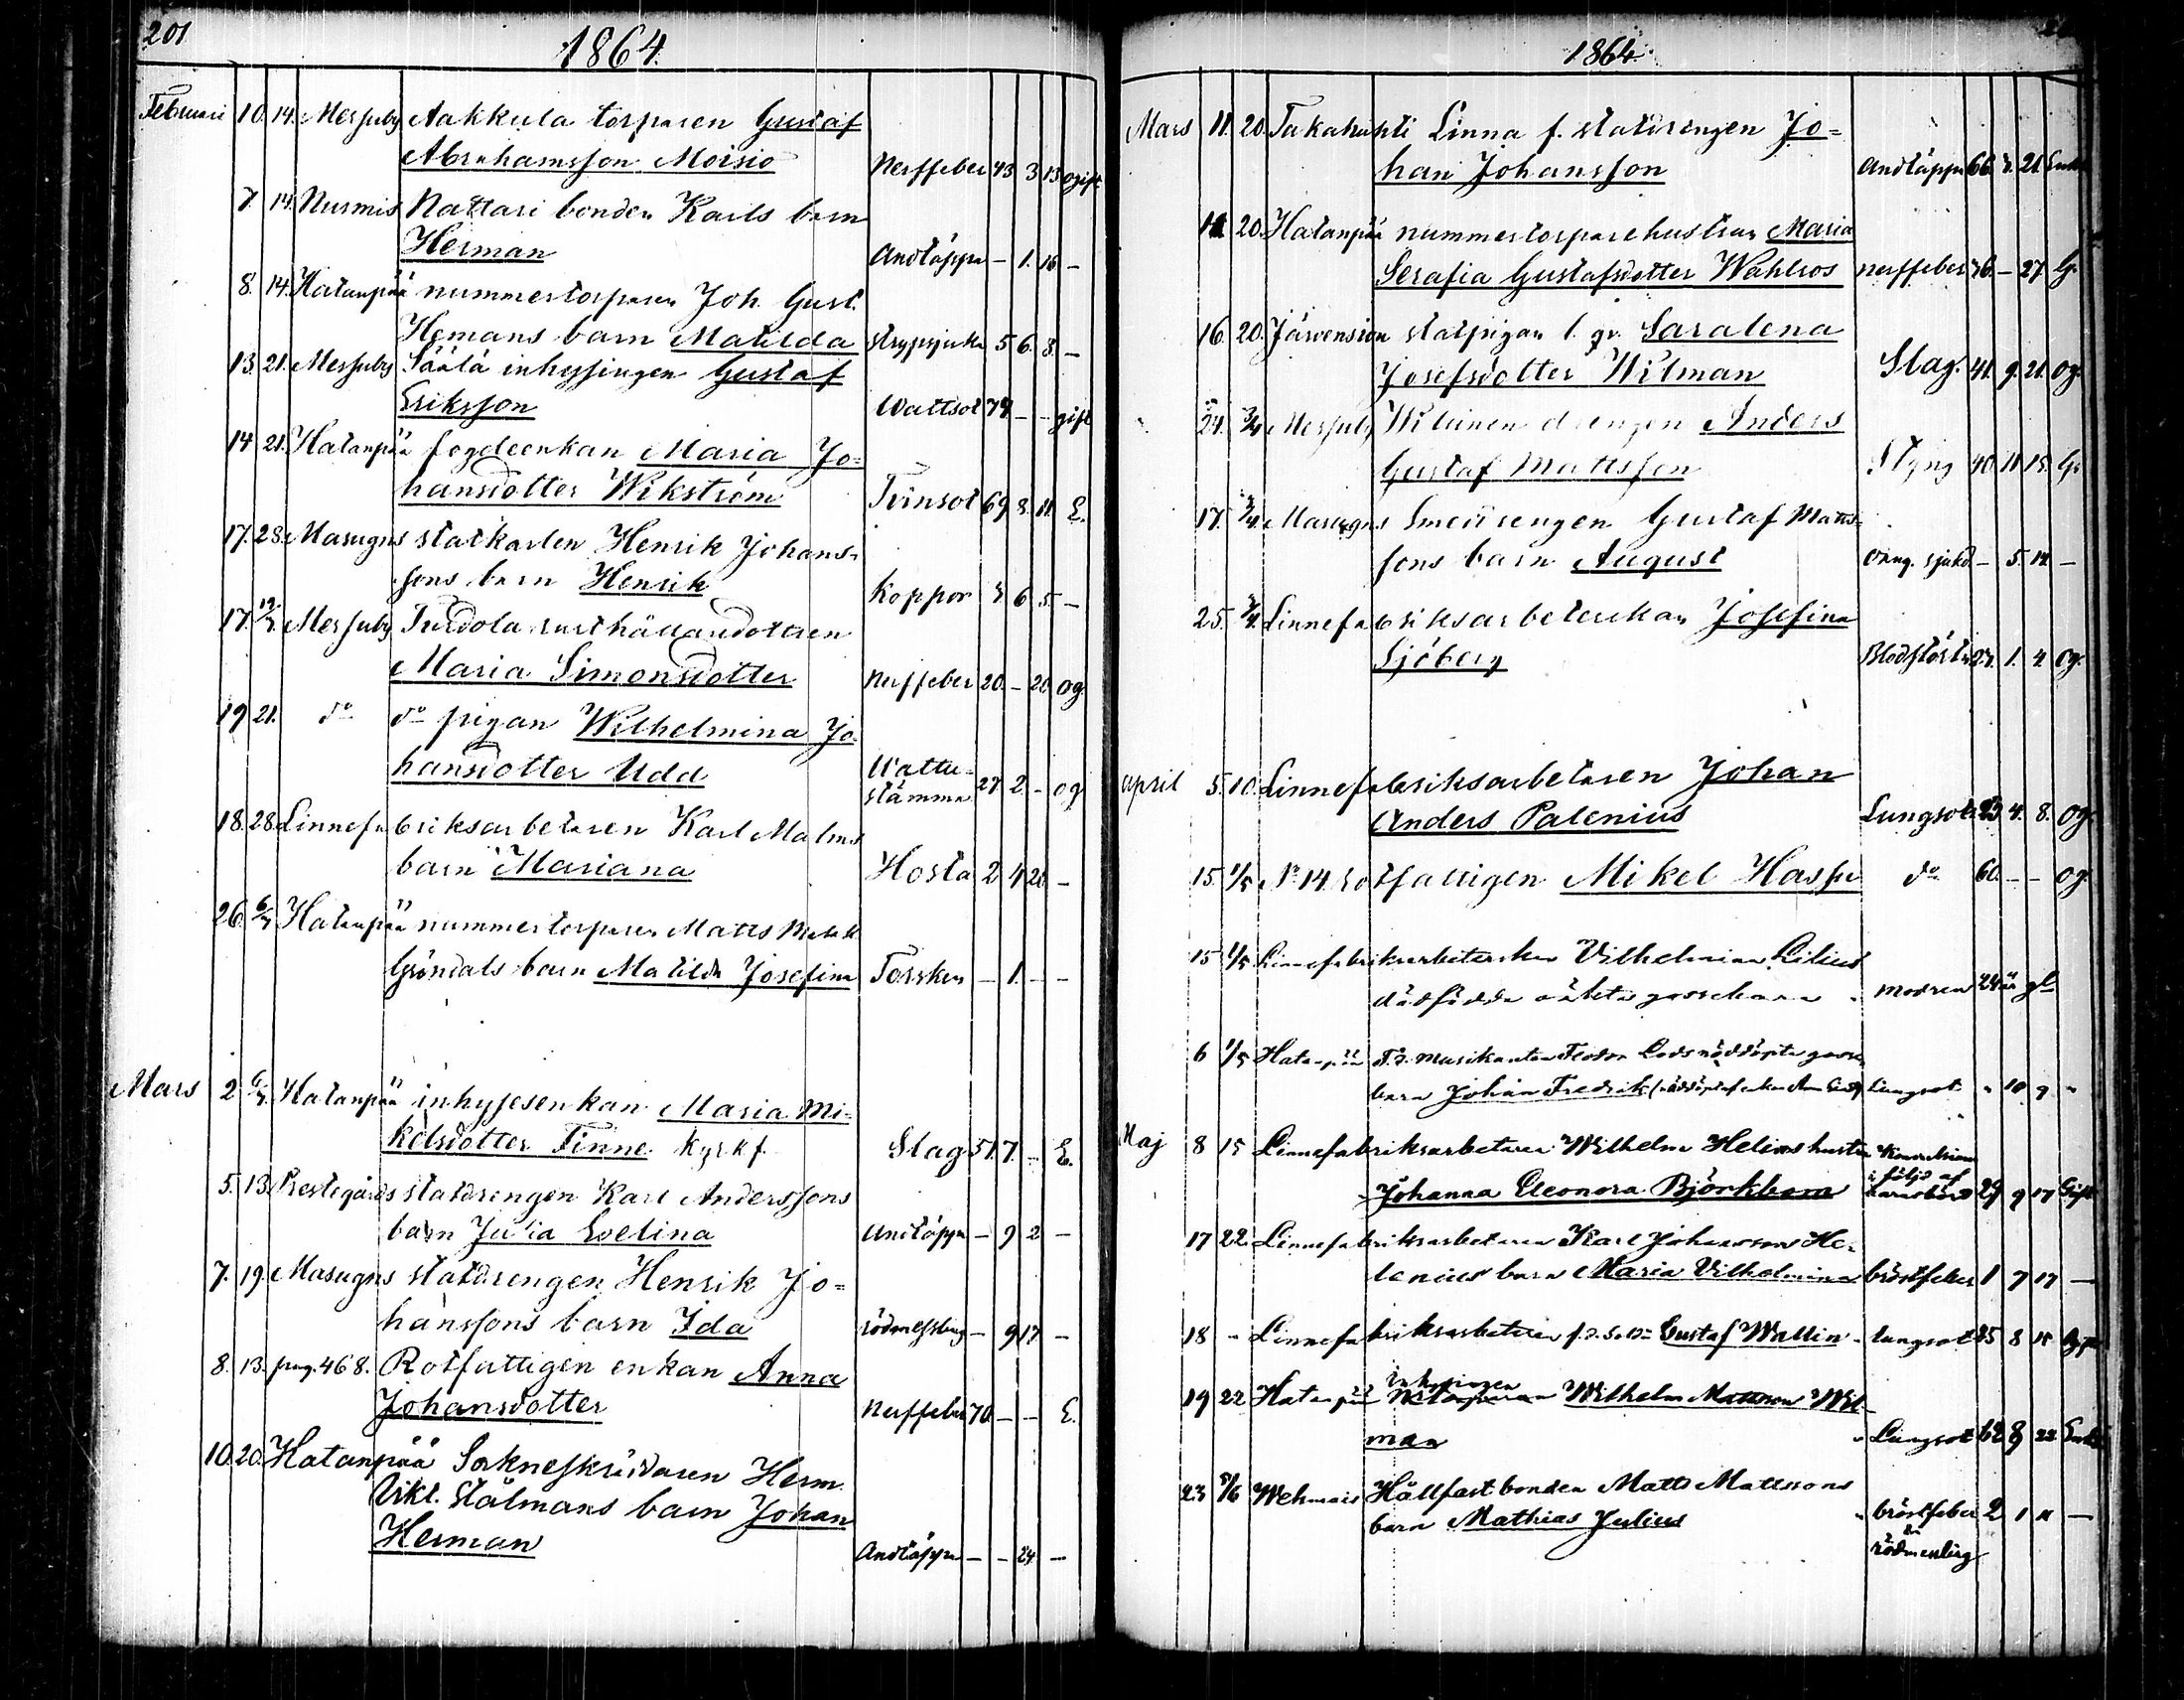 201
1864.
Februari 10. 14. Messuby Aakkula torparen Gustaf
Abrahamsson Moisio Nerffeber 43 3 13 ogift
7. 14. Nurmis Nattari bonden Karls barn
Herman Andtäppa - 1. 16 -
8. 14. Hatanpää nummertorparen Joh. Gust.
Hemans barn Matilda Strypsjuka 5 6. 8. -
13. 21. Messuby Säälä inhysingen Gustaf
Eriksson Wattsot 74 - - gift
14 21. Hatanpää fogdeenkan Maria Jo=
hansdotter Wikström Tvinsot 69 8. 11. E.
17. 28. Masugns statkarlen Henrik Johans-
sons barn Henrik Koppor 3 6 5. -
17. Messuby Turdola rusthållaredottren
Maria Simonsdotter Nerffeber 20. - 20. Og.
19 21. do do pigan Wilhelmina Jo-
hansdotter Udd Wattu-
stämma 27 2 - og
18. 28. Linnefabriksarbetaren Karl Malms
barn Mariana Hosta 2 4 20 -
26. 6/3 Hatanpää nummertorparen Matts
Gröndals barn Matilda Josefina Torsken - 1. - -
Mars 2 6/3 Hatanpää inhysesenkan Maria Mi-
kelsdotter Finne kyrkf. Slag 57. 7. - E.
5. 13. Prestegårds statdrengen Karl Anderssons
barn Julia Evelina Andtäppa - 9 2 -
7. 19. Masugns statdrengen Henrik Jo=
hanssons barn Ida rödmessling - 9 17 -
8. 13. pag. 468. Rotfattigen enkan Anna
Johansdotter Nerffeber 70. - - E.
10. 20. Hatanpää Sockneskräddaren Herm.
Vikt. Stålmans barn Johan
Herman Andtäppa - - 24. -
1864.
Mars 11. 20. Takahuhti Linna f. statdrengen Jo=
han Johansson Andtäppa 66. 7. 21.
11. 20. Hatanpää nummertorparehustrun Maria
Serafia Gustafsdotter Wahlros nerffeber 36. - 27. G.
16. 20. Järvensivu statpigan l. qv. Saralena
Josefsdotter Wilman Slag. 41. 9. 21. Og.
24. 3/4 Messuby drengen Anders
Gustaf Mattsson Styng 40. 11. 15. G.
17. 3/4. Masugns Smeddrengen Gustaf Matts-
sons barn August Oang. sjukd. - 5. 14. -
25. 3/4. Linnefabriksarbeterskan Josefina
Sjöberg Blodstört. 27. 1. 4 Og.
April 5. 10. Linnefabriksarbetaren Johan
Anders Palenius Lungsot 23 4. 8. Og.
15. 1/5 No 14 rotfattigen Mikel Hassu do 60. - - Og.
15 1/5 Linnefabriksarbeterskan Vilhelmina Lilius
dödfödda oäkta gossebarn modren 24
6 1/5 Hatanpää F.d. musikanten Feodor nöddöpta gosse
barn Johan Fredrik Lungsot " 10 9 "
Maj 8 15 Linnefabriksarbetaren Wilhelm Helins hustru
Johanna Eleonora Björkbom Konvulsioner
i följd af
barnsbörd 29 9 17 Gift
17 22. Linnefabriksarbetaren Karl Johansson He-
lenius barn Maria Vilhelmina bröstfeber 1 7 17 -
18 - Linnefabriksarbetaren f.d. Gustaf Wallin lungsot 25 8 15 Ogift
inhysingen
19 22 Hatanpää Wilhelm Mattsson Wil-
man Lungsot 62 8 22
23 5/6 Wehmais Hållfast bonden Matts Mattssons
barn Mathias Julius bröstfeber 2 1 11 -
rödmessling